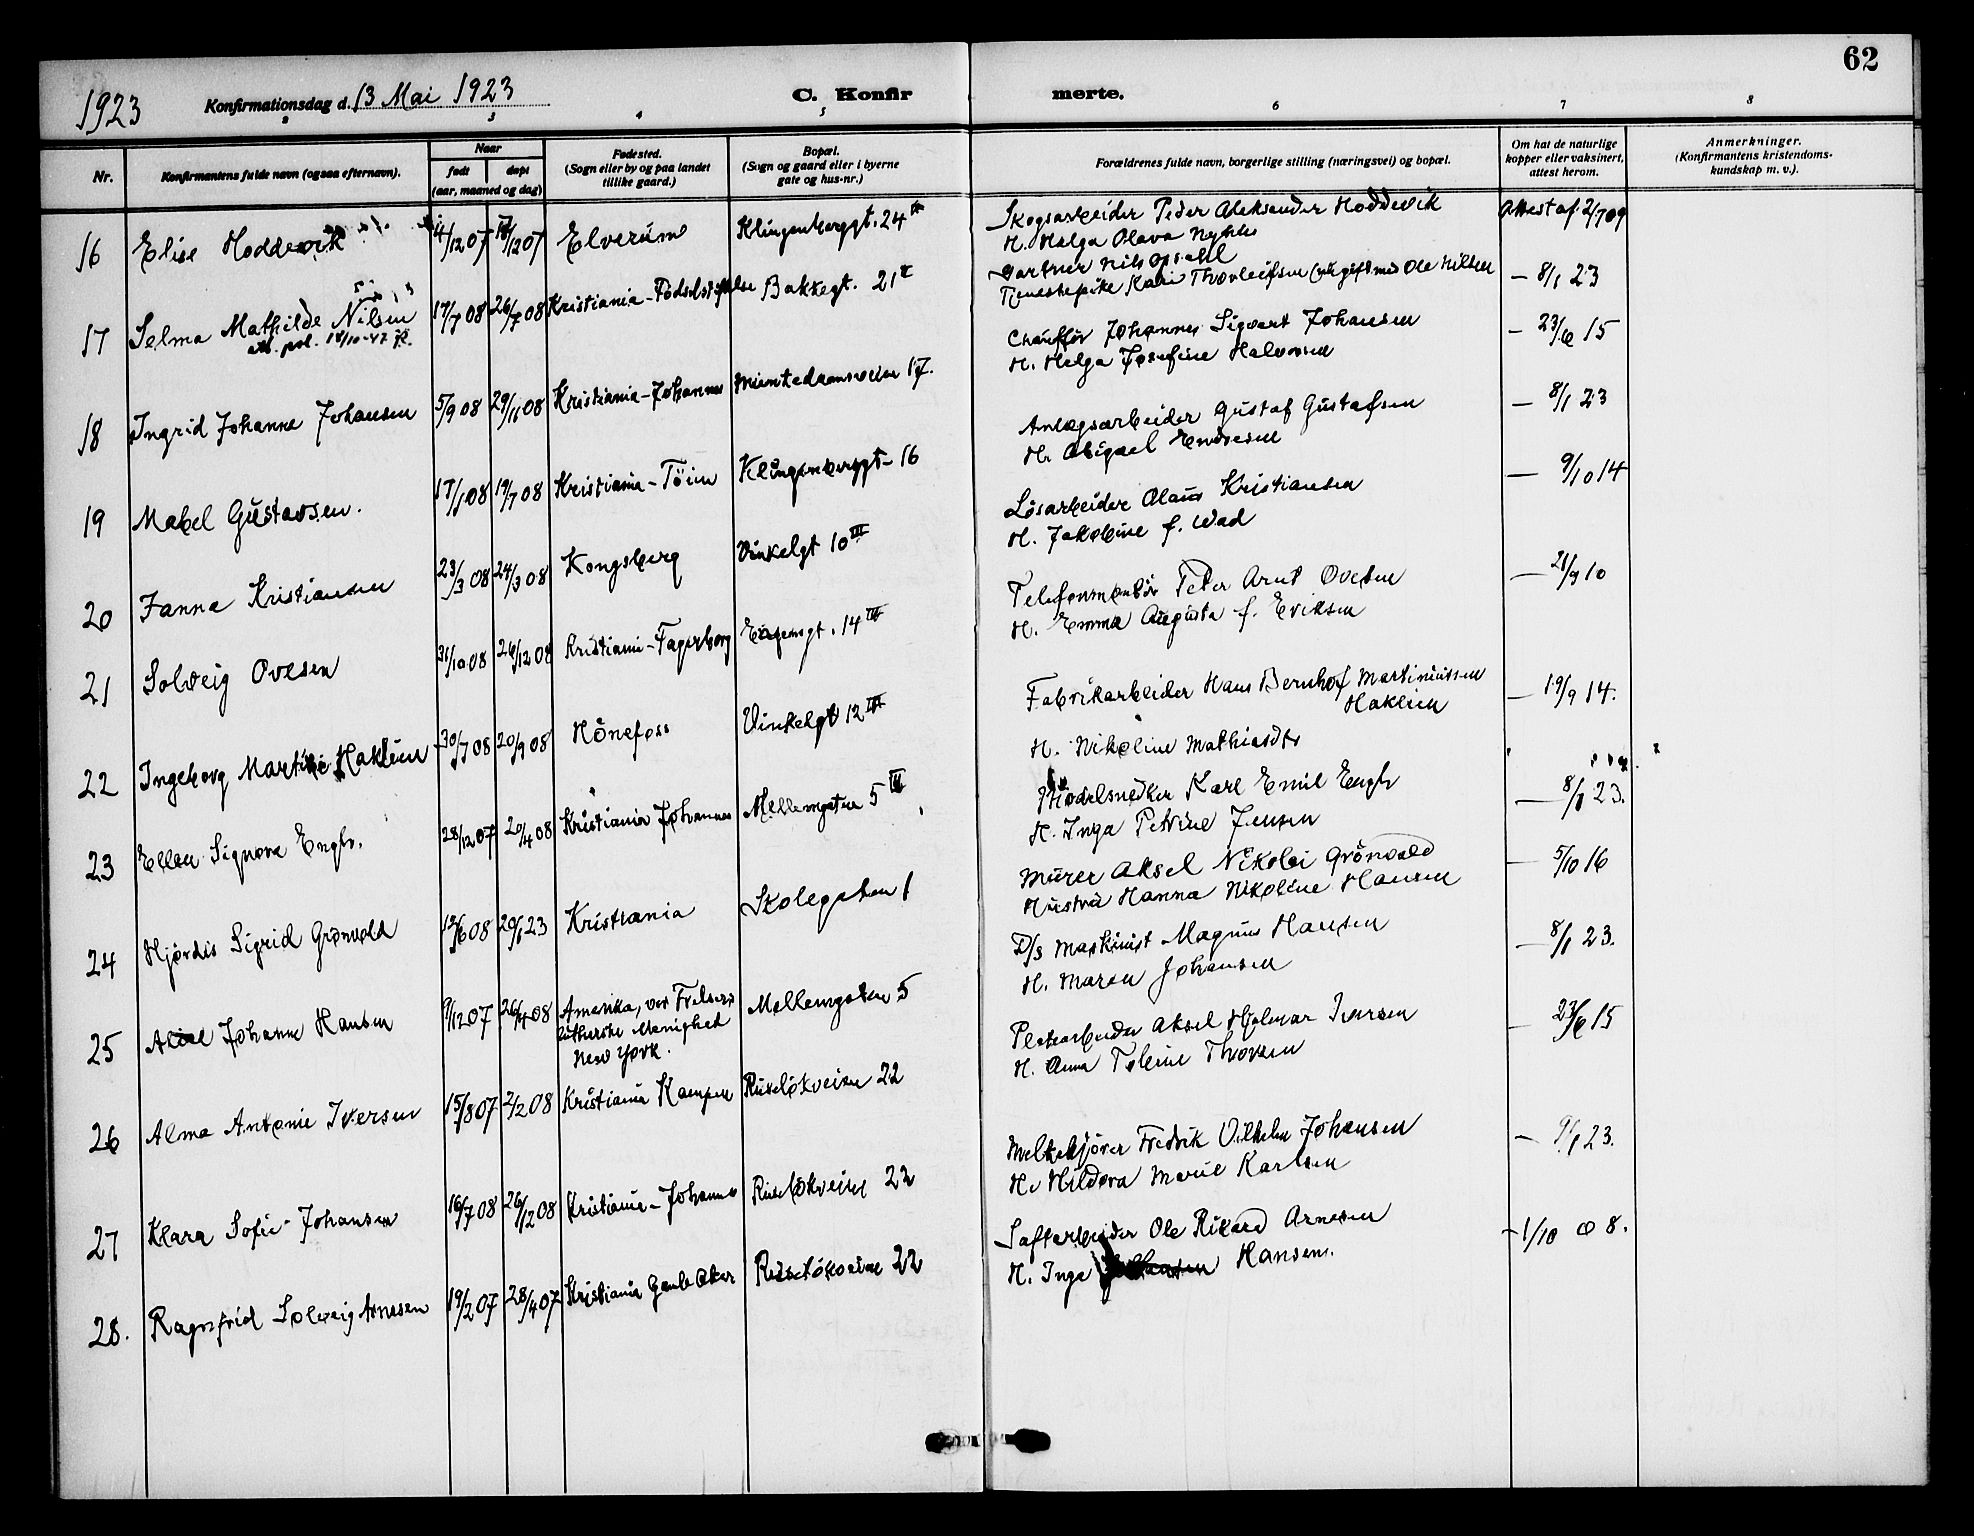 62
1923 Konfirmationsdag d. 13 Mai 1923 C. Konfirmerte.
2 3 4 5 6 7 8
Nr.
Konfirmantens fulde navn (ogsaa efternavn).
Naar
født
døpt
(aar, maaned og dag)
Fødested.
(Sogn eller by og paa landet
tillike gaard.)
Bopæl.
(Sogn og gaard eller i byerne
gate og hus-nr.)
Forældrenes fulde navn, borgerlige stilling (næringsvei) og bopæl.
Om hat de naturlige
kopper eller vaksinert,
attest herom.
Anmerkninger.
(Konfirmantens kristendoms-
kundskap m. v.).
16 Elise Hoddevik 4/12 07 12/07 Elverum Klingenberggt. 24
Skogsarbeider Peder Aleksander Hoddevik
H. Helga Olava
Attest af 2/7 09
17 Selma Mathilde Nilsen 17/7 08 26/7 08 Kristiania-Fødselsstiftelse Bakkegt. 21
att. pol. 18/10-47
Gartner Nils Opsahl
Tjenestepike Kari Thorleifsen gift med Ole Nilsen
— 8/1 23
18 Ingrid Johanne Johansen 5/9 08 29/11 08 Kristiania-Johannes Munkedamsveien 17.
Chauffør Johannes Sigvart Johansen
H. Helga Josefine Halvorsen
— 23/6 15
19 Mabel Gustavsen. 17/1 08 19/7 08 Kristiania-Tøien Klingenberggt-16
Anlægsarbeider Gustaf Gustafsen
H. Abigael Endresen
— 8/1 23
20 Janna Kristiansen 23/3 08 24/3 08 Kongsberg Vinkelgt 10 III
Løsarbeider Olaus Kristiansen
H. Jakobine f. Wad
— 9/10 14
21 Solveig Ovesen 31/10 08 26/12 08 Kristiania-Fagerborg 14 III
Telefonmontør Peder Arnt Ovesen
H. Emma Augusta f. Eriksen
— 21/9 10
22 Ingeborg Haklein 30/7 08 20/9 08 Hønefoss Vinkelgt 12 III
Fabrikarbeider Hans Bernhof Martiniussen
Haklein
H. Nikoline Mathiasdtr
— 19/9 14.
23 Ellen Signora Engh. 28/12 07 20/4 08 Kristiania Johannes Mellemgaten 5 III
Modelsnedker Karl Emil Engh
H. Inga Petrine Jensen
— 8/1 23.
24 Hjørdis Sigrid Grønvold 12/6 08 20/1 23 Kristiania Skolegaten 1
Murer Aksel Nikolai Grønvold
Hustru Hanna Nikoline Hansen
— 5/10 16
25 Johanne Hansen 9/12 07 26/4 08 Amerika, vor Frelsers
lutherske Menighed
New York.
Mellemgaten 5
D/S Maskinist Magnus Hansen
H. Maren Johansen
— 8/1 23.
26 Alma Antonie Iversen 15/8 07 2/2 08 Kristiania Kampen Ruseløkveien 22
Aksel Hjalmar Iversen
H. Anna Thorsen
— 23/6 15
27 Klara Sofie Johansen 16/7 08 26/12 08 Kristiania-Johannes Ruseløkveien 22
Melkekjører Fredrik Vilhelm Johansen
H. Hildora Marie Karlsen
— 9/1 23.
28. Ragnfrid Solveig Arnesen 19/2 07 28/4 07 Kristiania Gamle Aker Ruseløkveien 22
Ole Rikard Arnesen
H. Inga Hansen.
— 1/10 08.